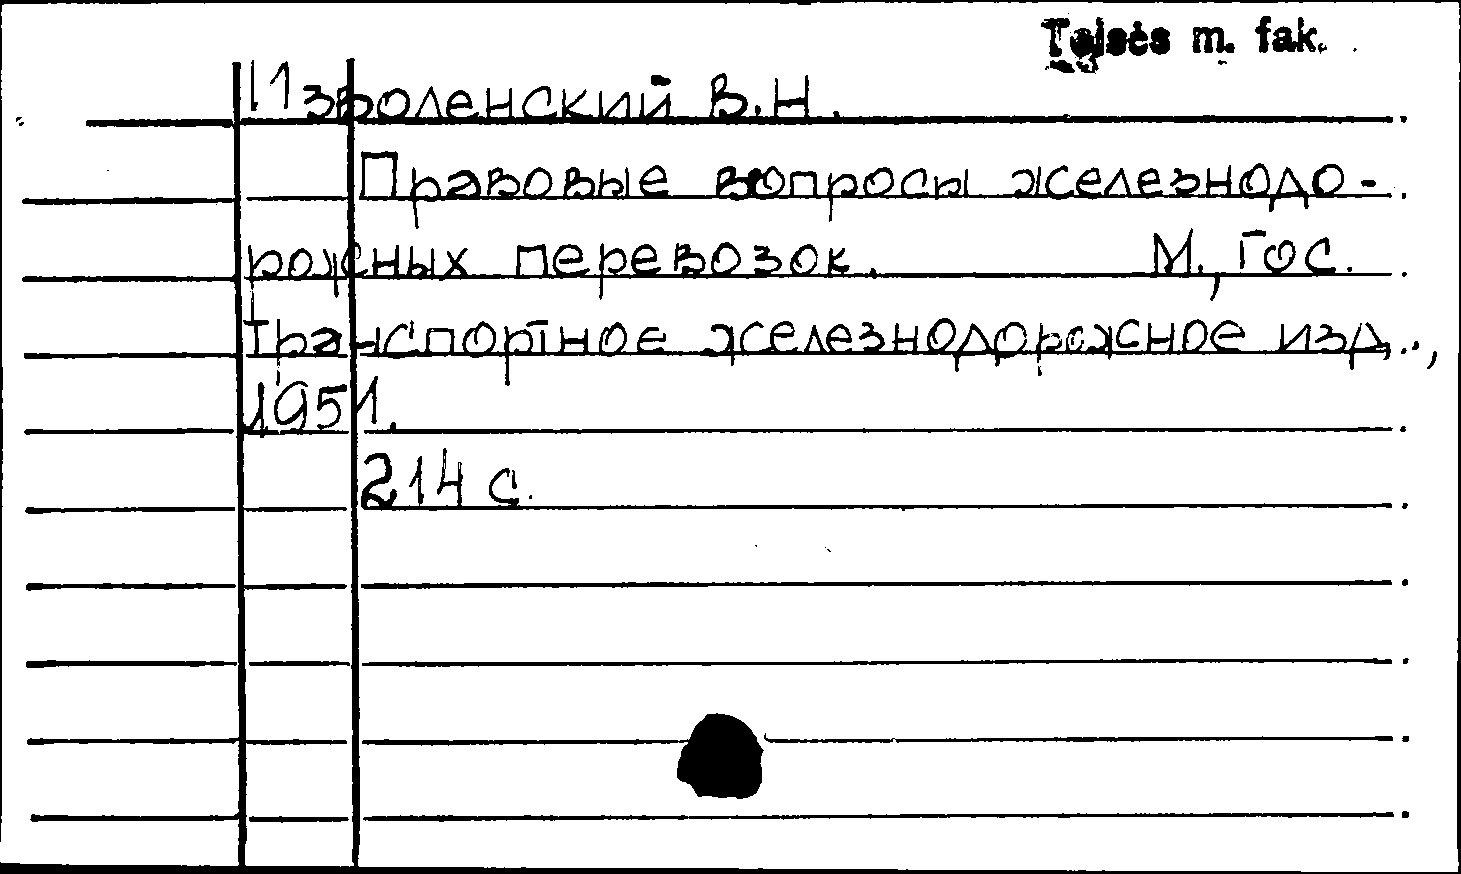 Teisės m. fak.
Изволенский В.Н.
Правовые вопросы железнодо-
рожных перевозок. М., Гос.
транспортное железнодорожное изд.,
1951.
214 с.